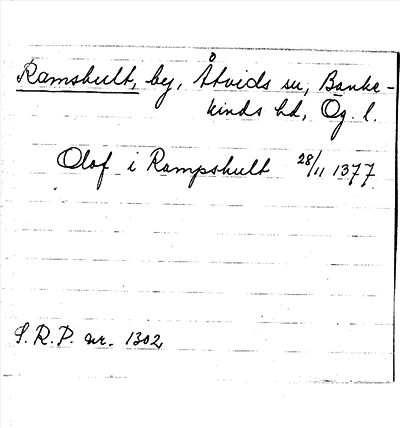 Ramshult, by, Åtvids sn, Banke-
kinds hd, Ög. l.
Olof i Rampshult 28/11 1377
S.R.P. nr. 1302